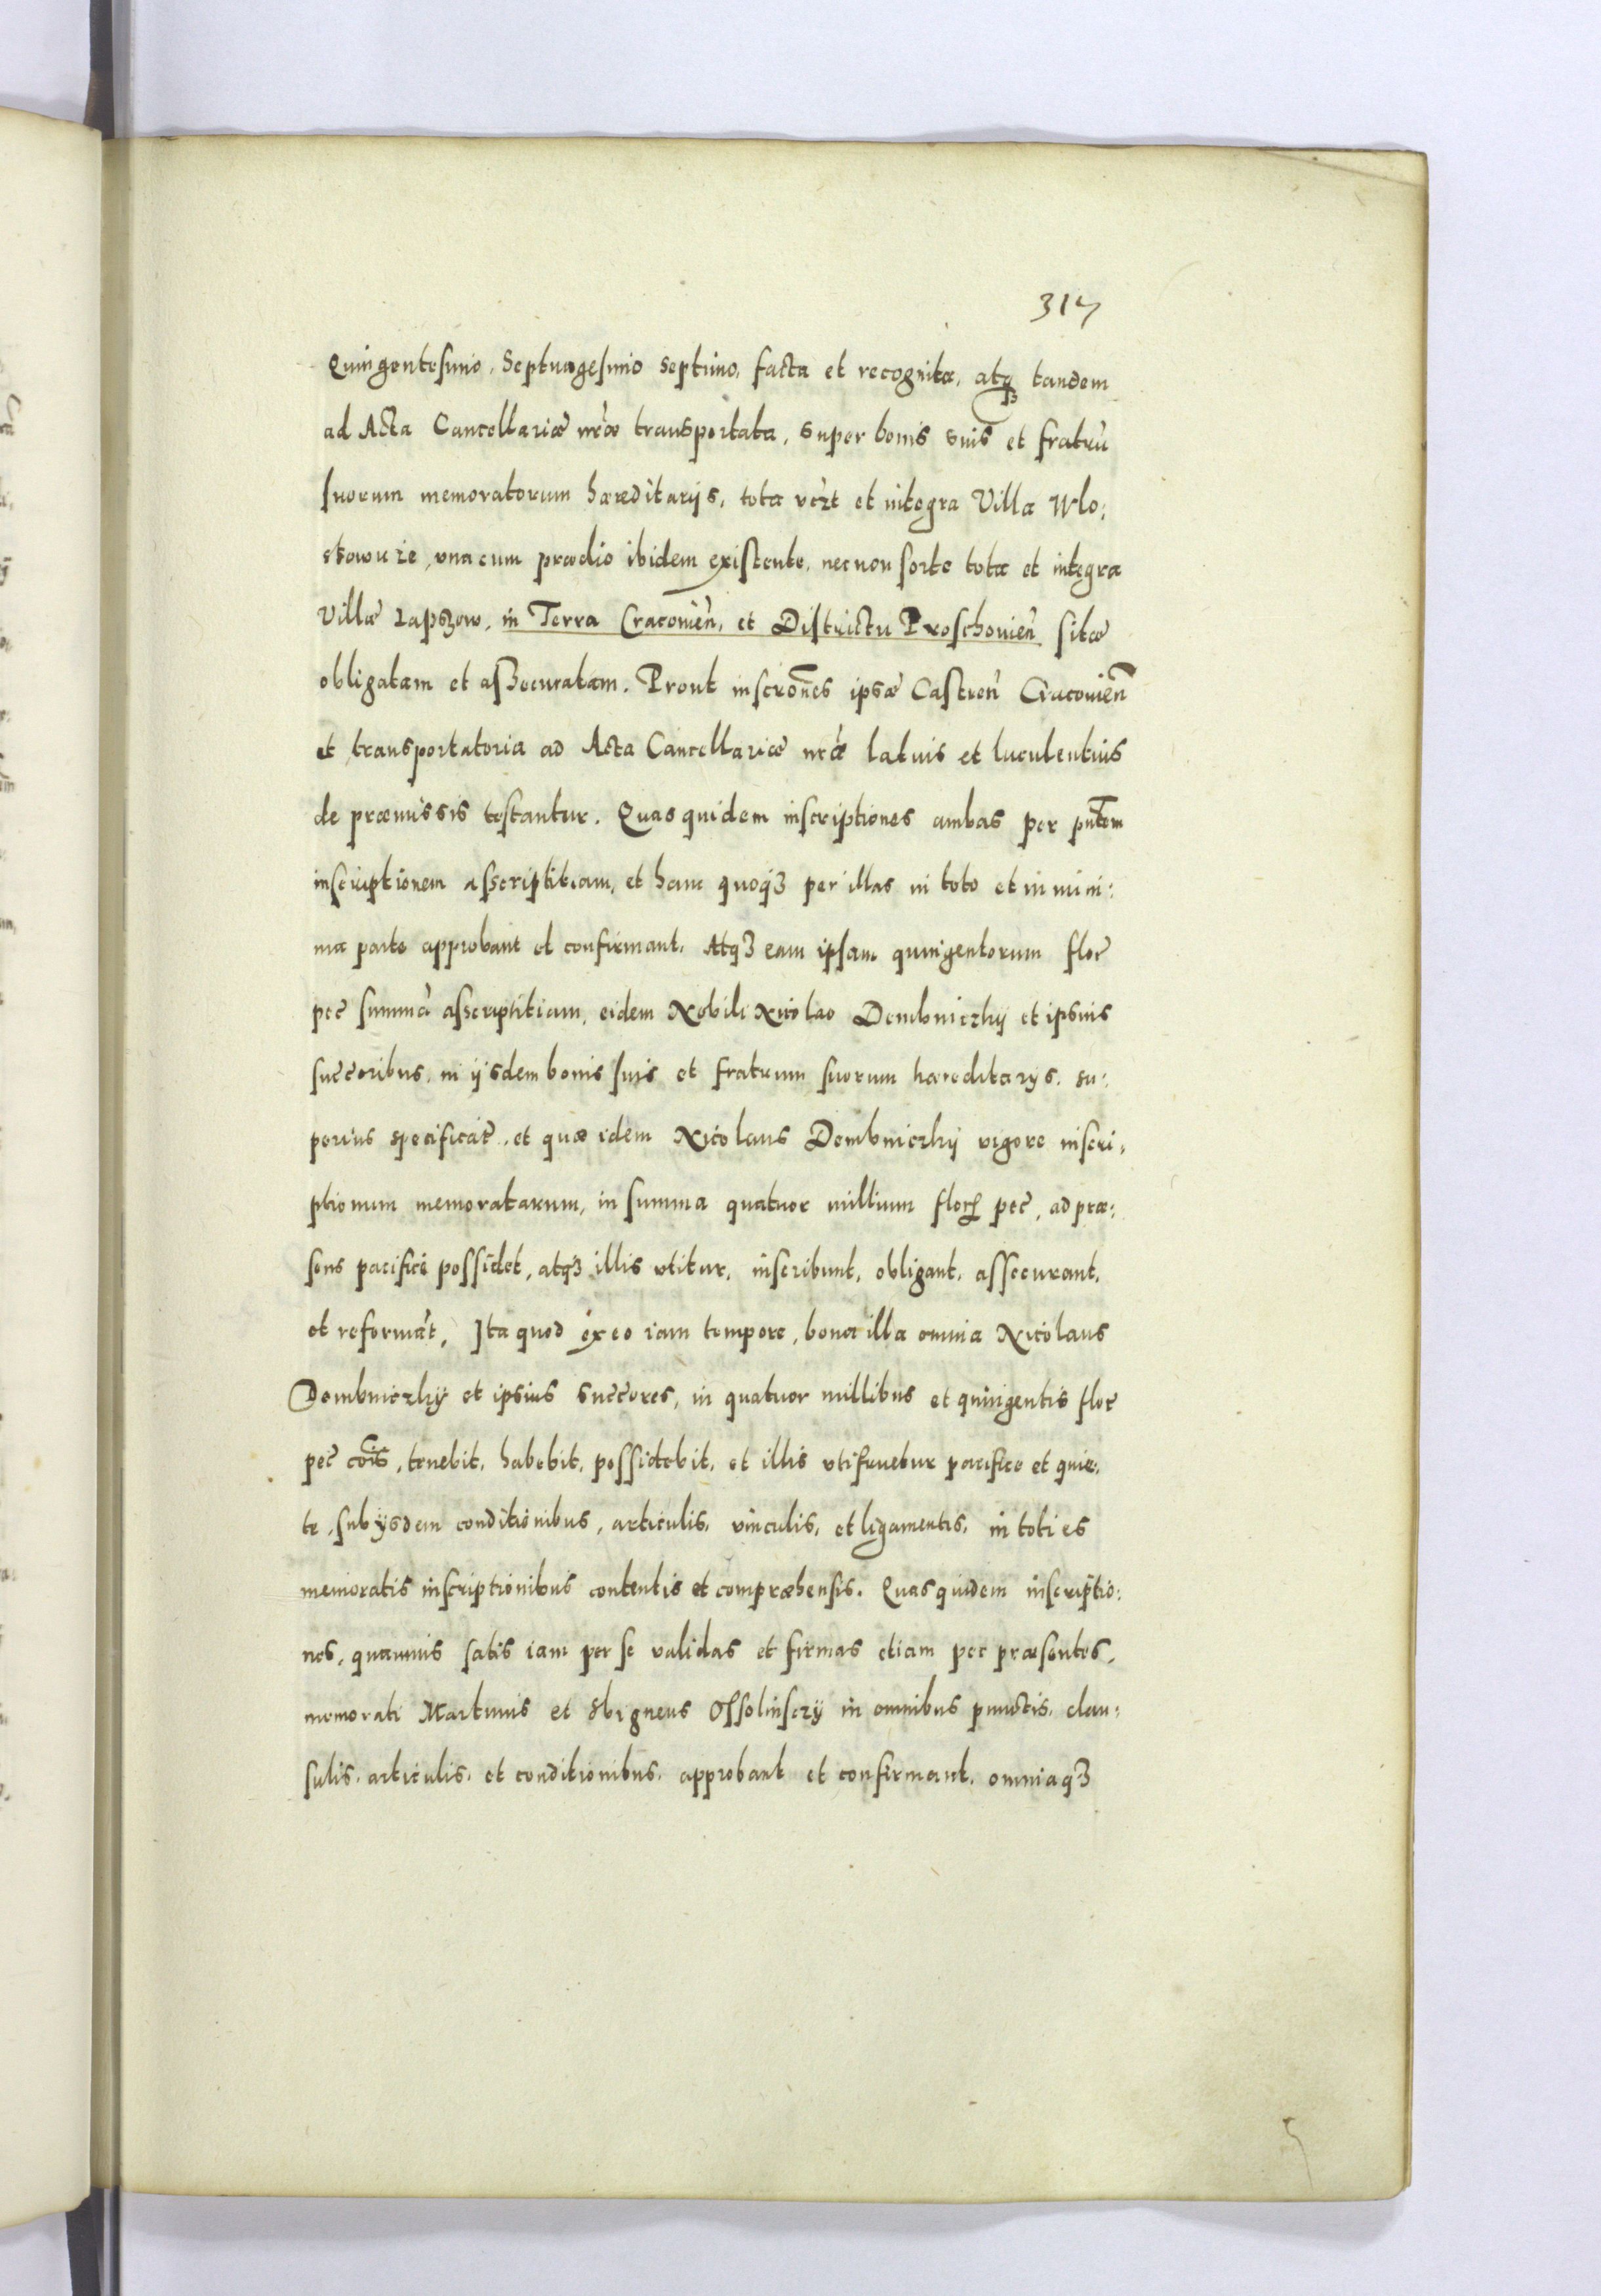 317
Quingentesimo, Septuagesimo septimo, facta et recognita, atq₃ tandem
ad Acta Cancellariæ nr̃æ transportata, super bonis suis et fratrũ
suorum memoratorum hæreditarijs, tota vczt et integra Villa Wlo:
stowicze, vna cum prædio ibidem existente, necnon sorte tota et integra
Villæ Lapszow, in Terra Cracovieñ, et Districtu Proschovieñ sitæ
obligatam et assecuratam. Prout inscrõnes ipsæ Castreñ Cracovieñ
et transportatoria ad Acta Cancellariæ nr̃æ latius et luculentius
de præmissis testantur. Quas quidem inscriptiones ambas per pñtem
inscriptionem asscriptitiam, et hanc quoq₃ per illas in toto et in mini:
ma parte approbant et confirmant. Atq₃ eam ipsam quingentorum flor̃
pec̃ summã asscriptitiam, eidem Nobili Nicolao Dembniczky et ipsius
succ̃oribus, in ijsdem bonis suis et fratrum suorum hæreditarijs, su:
perius specificat̃, et quæ idem Nicolaus Dembniczky vigore inscri:
ptionum memoratarum, in summa quatuor millium flor̃ pec̃, ad præ:
sens pacifice possidet, atq₃ illis vtitur, inscribunt, obligant, assecurant,
et reformãt, Ita quod ex eo iam tempore, bona illa omnia Nicolaus
Dembniczky et ipsius succ̃ores, in quatuor millibus et quingentis flor̃
pec̃ cõis, tenebit, habebit, possidebit, et illis vtifruetur pacifice et quie:
te, sub ijsdem conditionibus, articulis, vinculis, et ligamentis, in toties
memoratis inscriptionibus contentis et compræhensis. Quas quidem inscriptio:
nes, quamuis satis iam per se validas et firmas etiam per præsentes,
memorati Martinus et Sbigneus Ossolinsczy in omnibus punctis, clau:
sulis, articulis, et conditionibus, approbant et confirmant, omniaq₃